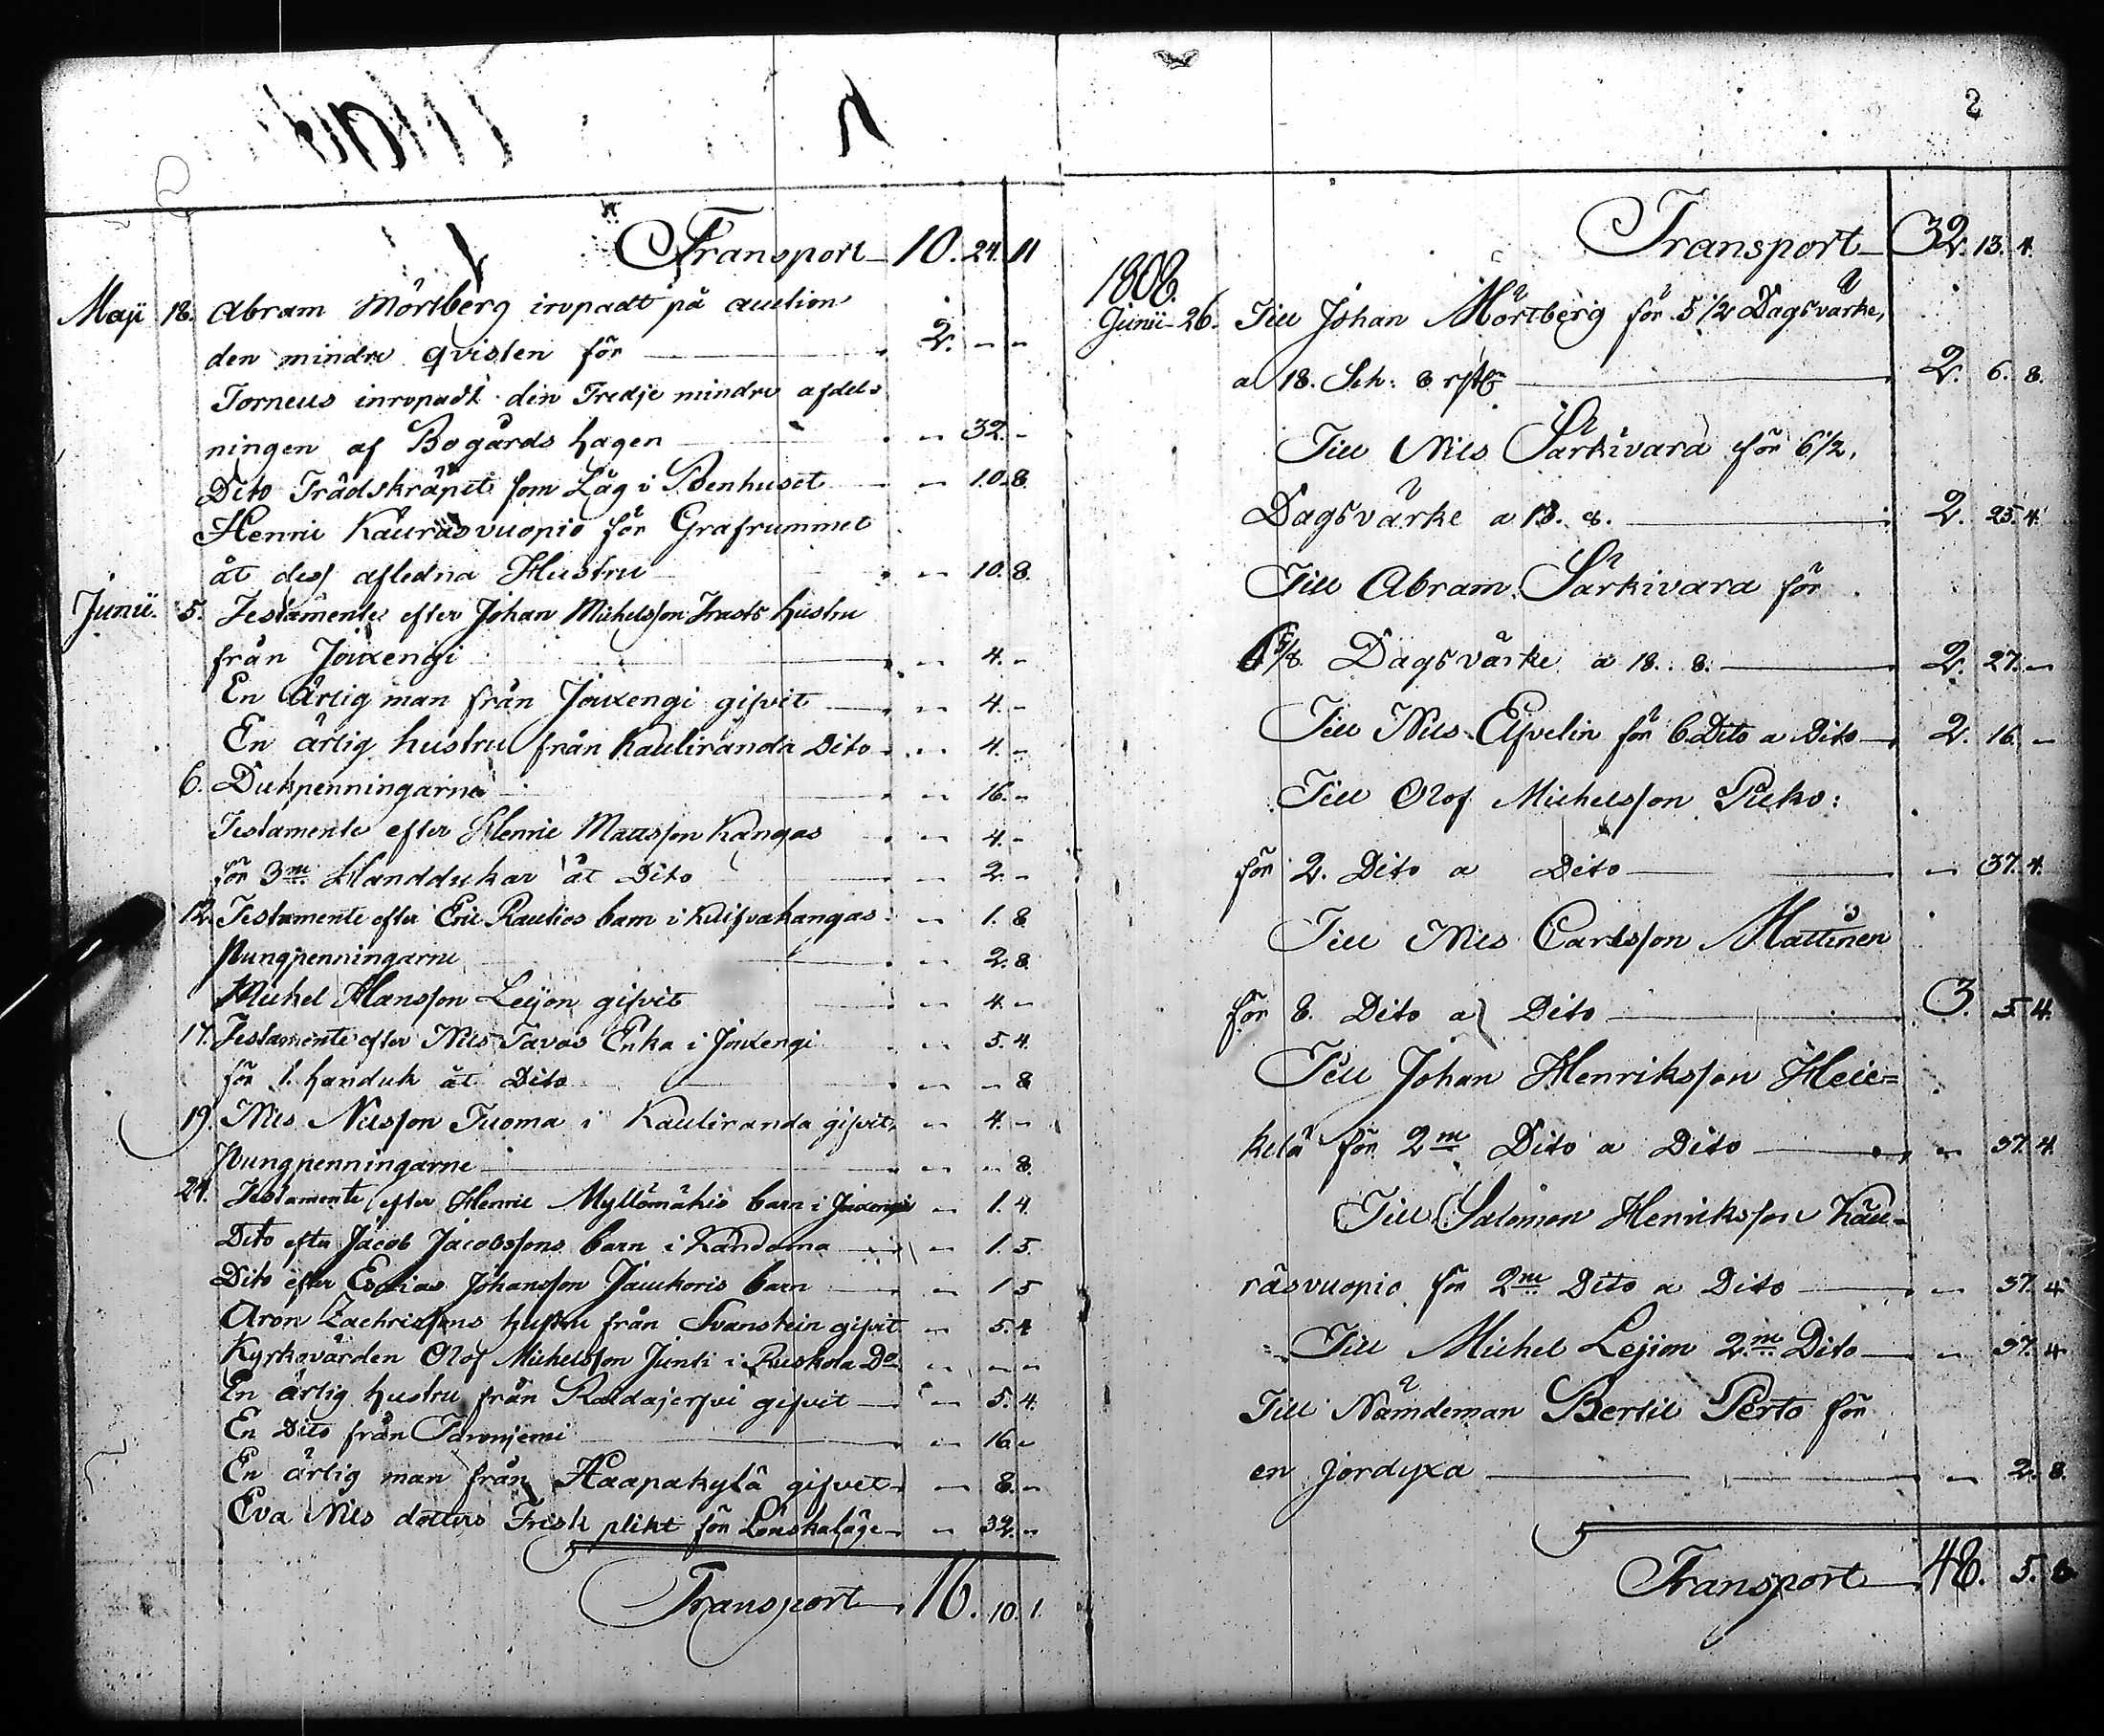 Transport 10. 24. 11
Maji 18. Abram Mörtberg inropadt på auction
den mindre qvisten för 2. - -
Torneus inropadt den Tredje mindre afdel-
ningen af Bogårds hagen - 32. -
Dito Trädskräpet som Låg i Benhuset - 10. 8.
Henric Kauräsvuopio för Grafrummet
åt dess afledna Hustru - 10. 8.
Junii. 5. Testamente efter Johan Michelsson Trasts hustru
från Jouxengi - 4. -
En Ärlig man från Jouxengi gifvit - 4. -
En ärlig hustru från Kauliranda Dito - 4. -
6. Dukpenningarne - 16. -
Testamente efter Henric Mattsson Kangas - 4. -
för 3ne Handdukar åt Dito - 2. -
12. Testamente efter Eric Rautios barn i Kuifvakangas - 1. 8
Pungpenningarne - 2. 8.
Michel Hansson Leijon gifvit - 4. -
17. Testamente efter Nils Tavas Enka i Jouxengi - 5. 4.
för 1. handuk åt Dito - - 8
19. Nils Nilsson Tuoma i Kauliranda gifvit - 4. -
Pungpenningarne - - 8.
24. Testamente efter Henric Myllömäkis barn i Jouxengi - 1. 4.
Dito efter Jacob Jacobssons barn i Kandoma - 1. 5.
Dito efter Esaias Johansson Jauhoris barn - 1 5
Aron Zachrissons hustru från Svanstein gifvit - 5. 4
Kyrkovärden Olof Michelsson Junti i Ruskola Do - - -
En ärlig hustru från Rattajerfvi gifvit - 5. 4.
En Dito från - 16 -
En ärlig man från Haapakylä gifvet - 8. -
Eva Nils dotters Frisk plikt för Lönskaläge - 32. -
Transport 16. 10. 1.
2
Transport 32. 13. 4.
1808.
Junii 26. Till Johan Mörtberg för 5 1/2 Dagsvärke,
a 18. Sch: 8 rst 2. 6. 8.
Till Nils Särkivara för 6 1/2,
Dagsvärke a 18. 8. 2. 23. 4.
Till Abram Särkivara för
6 5/8. Dagsvärke a 18. 8. 2. 27. -
Till Nils Elfvelin för 6 Dito a Dito 2. 16. -
Till Olof Michelsson Piiko:
för 2. Dito a Dito - 37. 4.
Till Nils Carlsson Mattinen
för 8. Dito a Dito 3. 5. 4.
Till Johan Henriksson Heic=
kelä för 2ne Dito a Dito - 37. 4.
Till Salomon Henriksson Kau=
räsvuopio för 2ne Dito a Dito - 37. 4
Till Michel Leijon 2ne Dito - 37. 4
Till Nämdeman Bertil Perto för
en jordyxa - 2. 8.
Transport 48. 5. 8